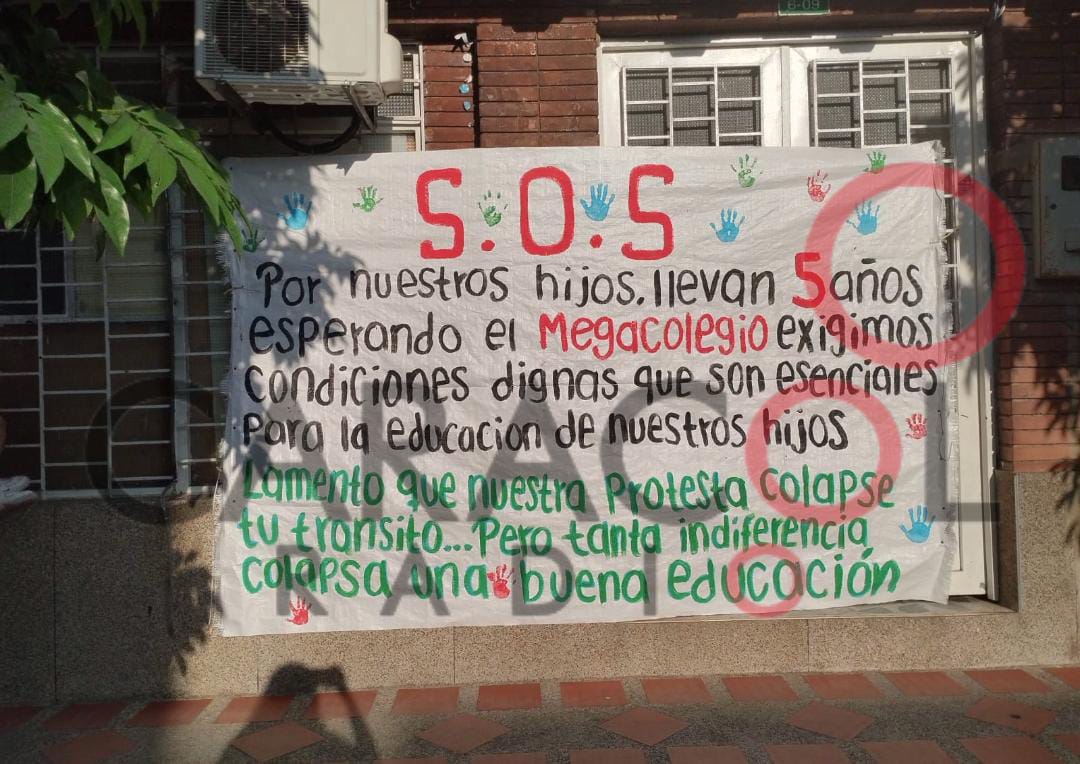 6-09
S.O.S
Por nuestros hijos, llevan 5 años
esperando el Megacolegio exigimos
condiciones dignas que son esenciales
para la educacion de nuestros hijos
Lamento que nuestra Protesta Colapse
tu transito... Pero tanta indiferencia
colapsa una buena educación
CARACOL
RADIO